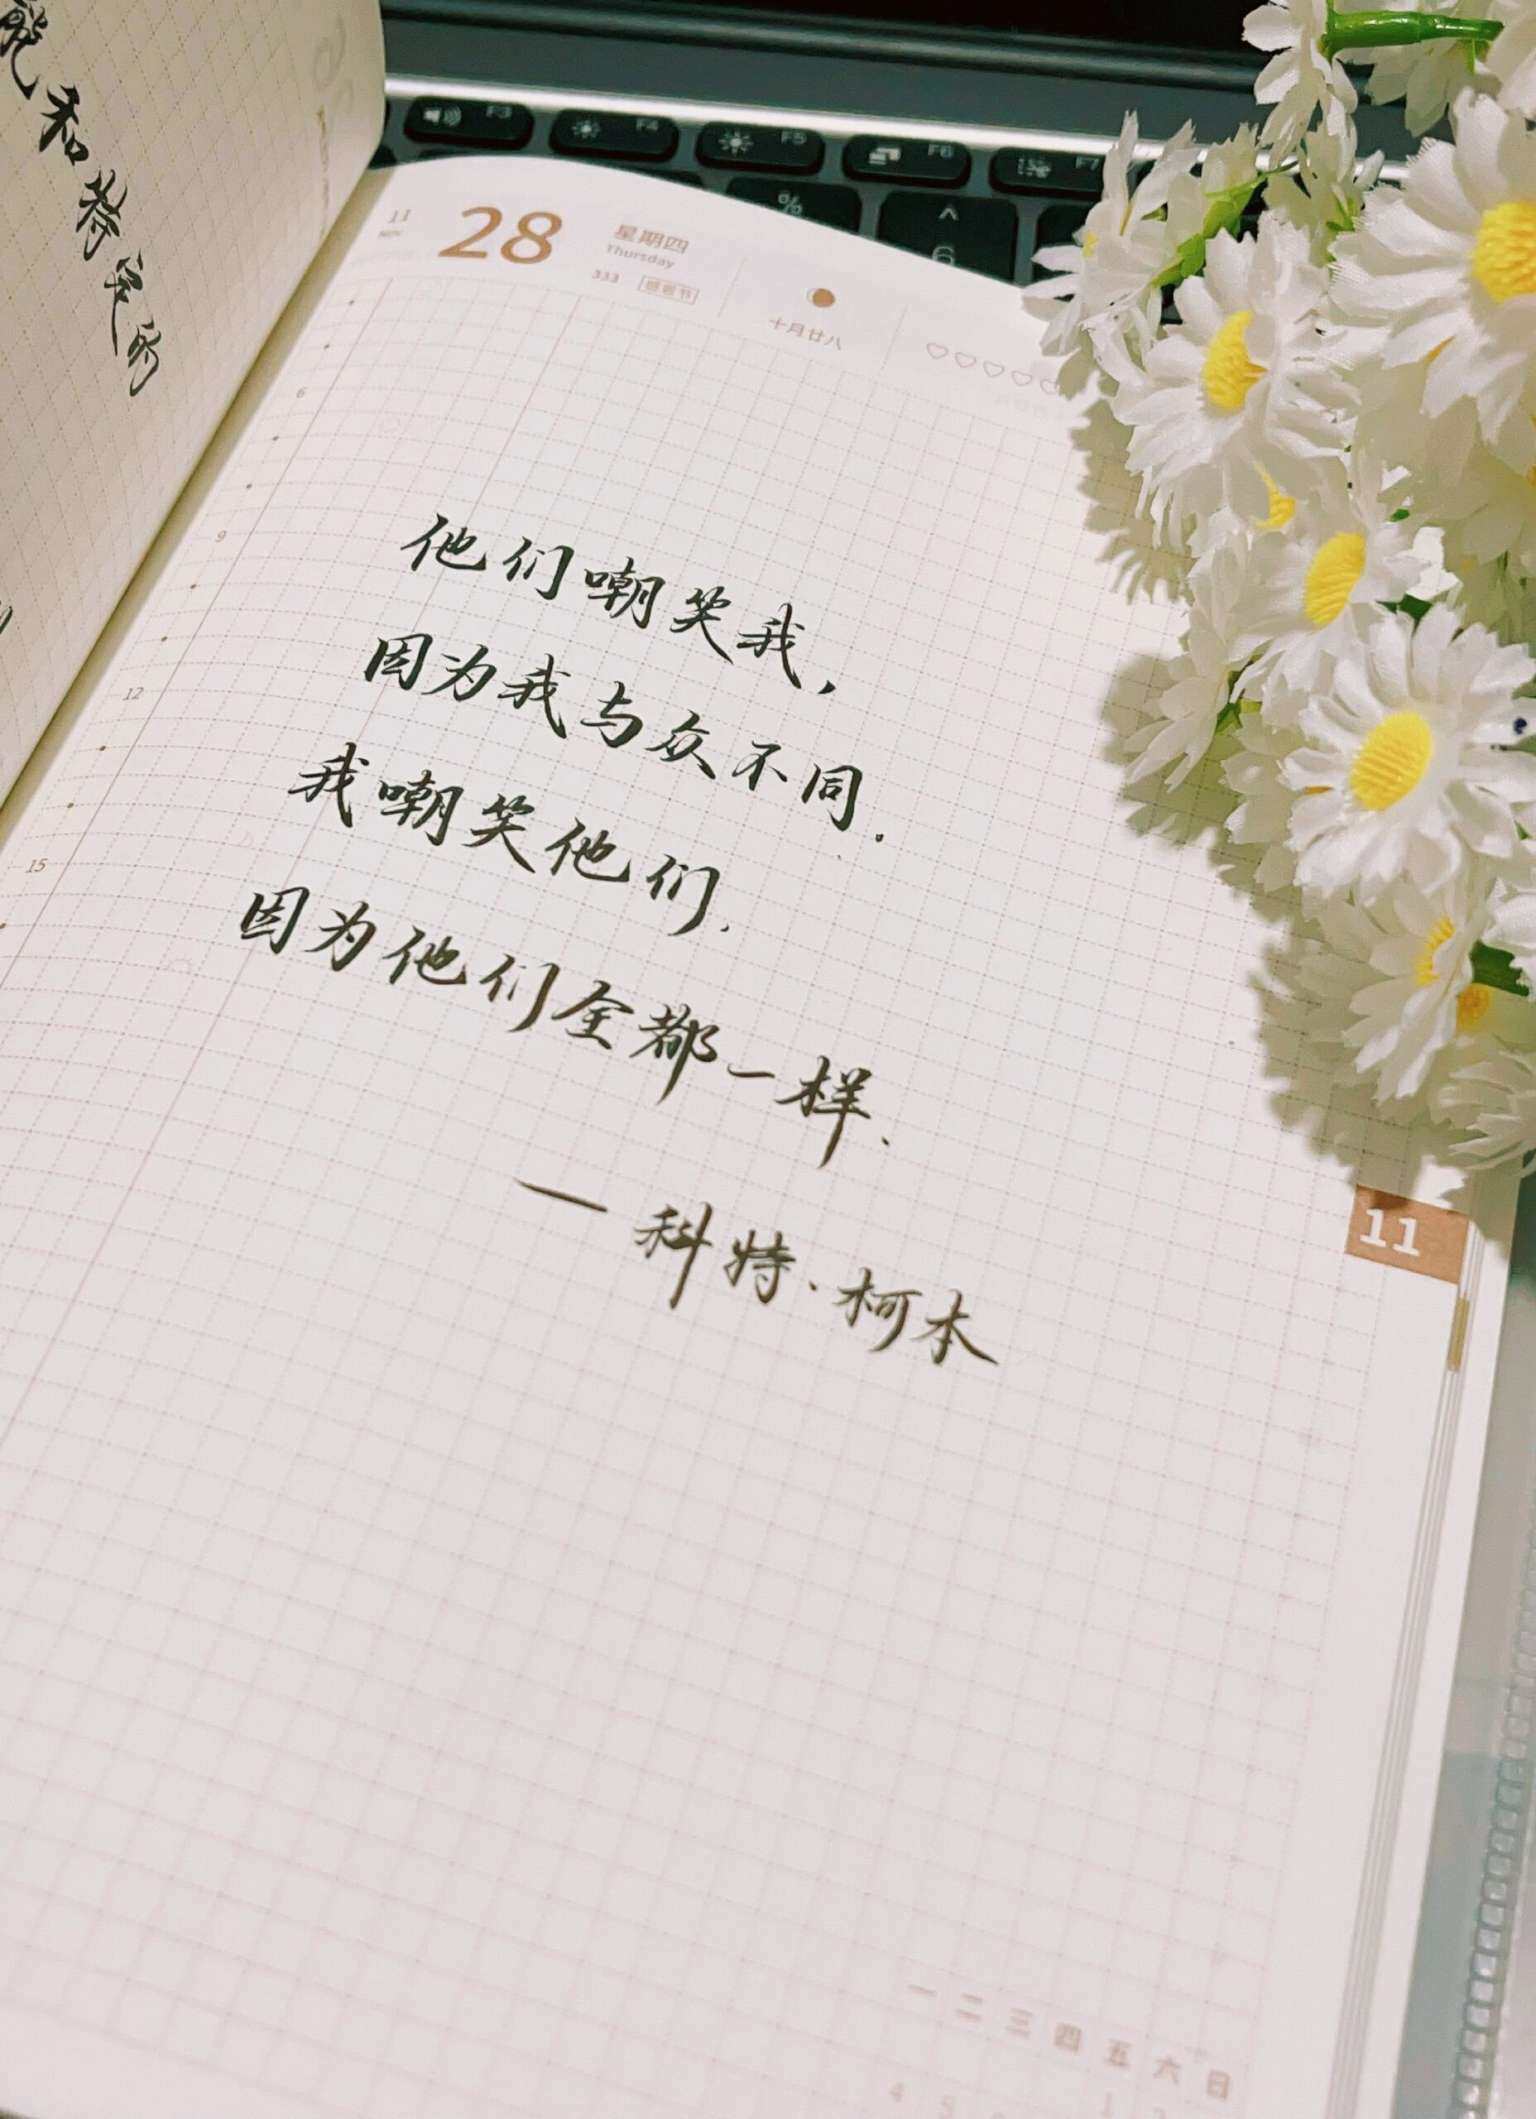 能和特定的
F3
F4
F5
F6
F7
%
^
6
11
NOV
28
星期四
Thursday
333
感恩节
十月廿八
6
9
12
15
他们嘲笑我,
因为我与众不同.
我嘲笑他们.
因为他们全都一样.
—科特·柯本
11
一 二 三 四 五 六 日